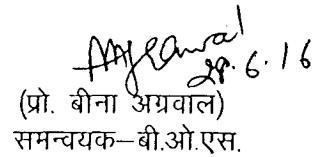 Agrawal
28.6.16
(प्रो. बीना अग्रवाल)
समन्वयक–बी.ओ.एस.